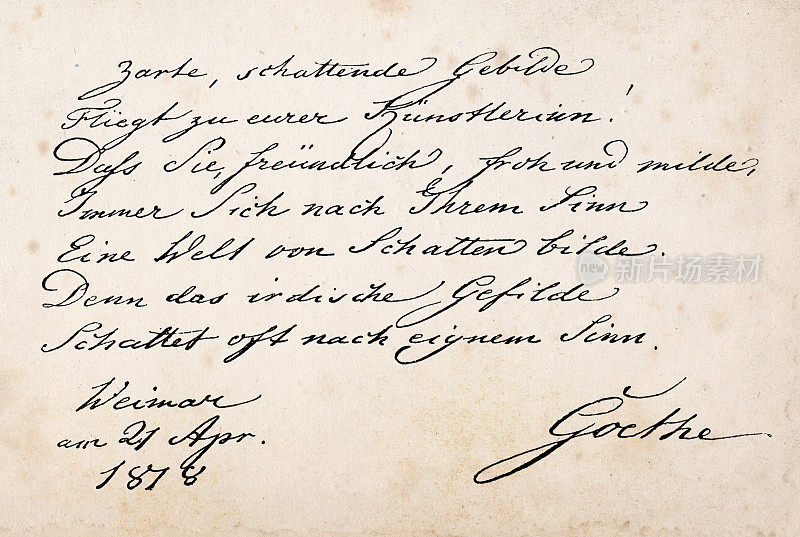 Zarte, schattende Gebilde
Fliegt zu eurer Künstlerinn!
Daſs Sie, freündlich, froh und milde,
Immer Sich nach Ihrem Sinn
Eine Welt von Schatten bilde.
Denn das irdische Gefilde
Schattet oft nach eignem Sinn.
Weimar
am 21 Apr.
1818
Goethe
new 新片场素材